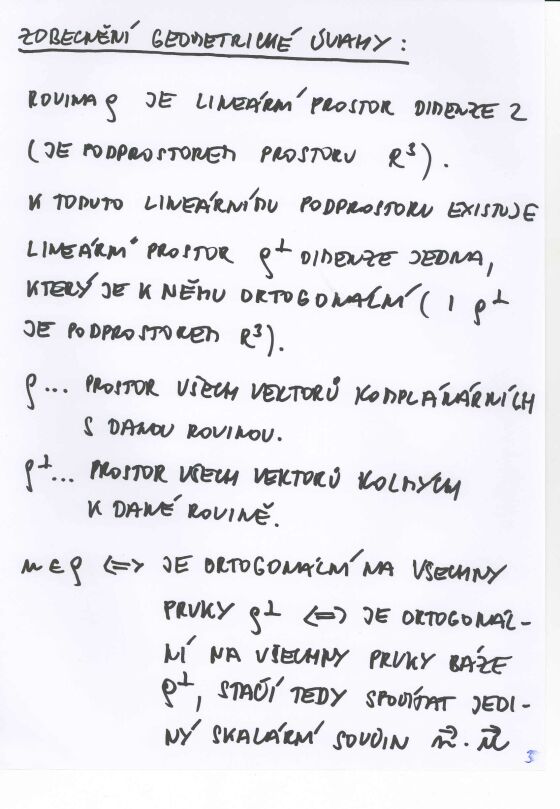 ZOBECNĚNÍ GEOMETRICKÉ ÚVAHY:
ROVINA ρ JE LINEÁRNÍ PROSTOR DIMENZE 2
(JE PODPROSTOREM PROSTORU R³).
K TOMUTO LINEÁRNÍMU PODPROSTORU EXISTUJE
LINEÁRNÍ PROSTOR ρ⊥ DIMENZE JEDNA,
KTERÝ JE K NĚMU ORTOGONÁLNÍ ( I ρ⊥
JE PODPROSTOREM R³).
ρ... PROSTOR VŠECH VEKTORŮ KOMPLANÁRNÍCH
S DANOU ROVINOU.
ρ⊥... PROSTOR VŠECH VEKTORŮ KOLMÝCH
K DANÉ ROVINĚ.
m ∈ ρ ⟺ JE ORTOGONÁLNÍ NA VŠECHNY
PRVKY ρ⊥ ⟺ JE ORTOGONÁL-
NÍ NA VŠECHNY PRVKY BÁZE
ρ⊥, STAČÍ TEDY SPOČÍTAT JEDI-
NÝ SKALÁRNÍ SOUČIN
3